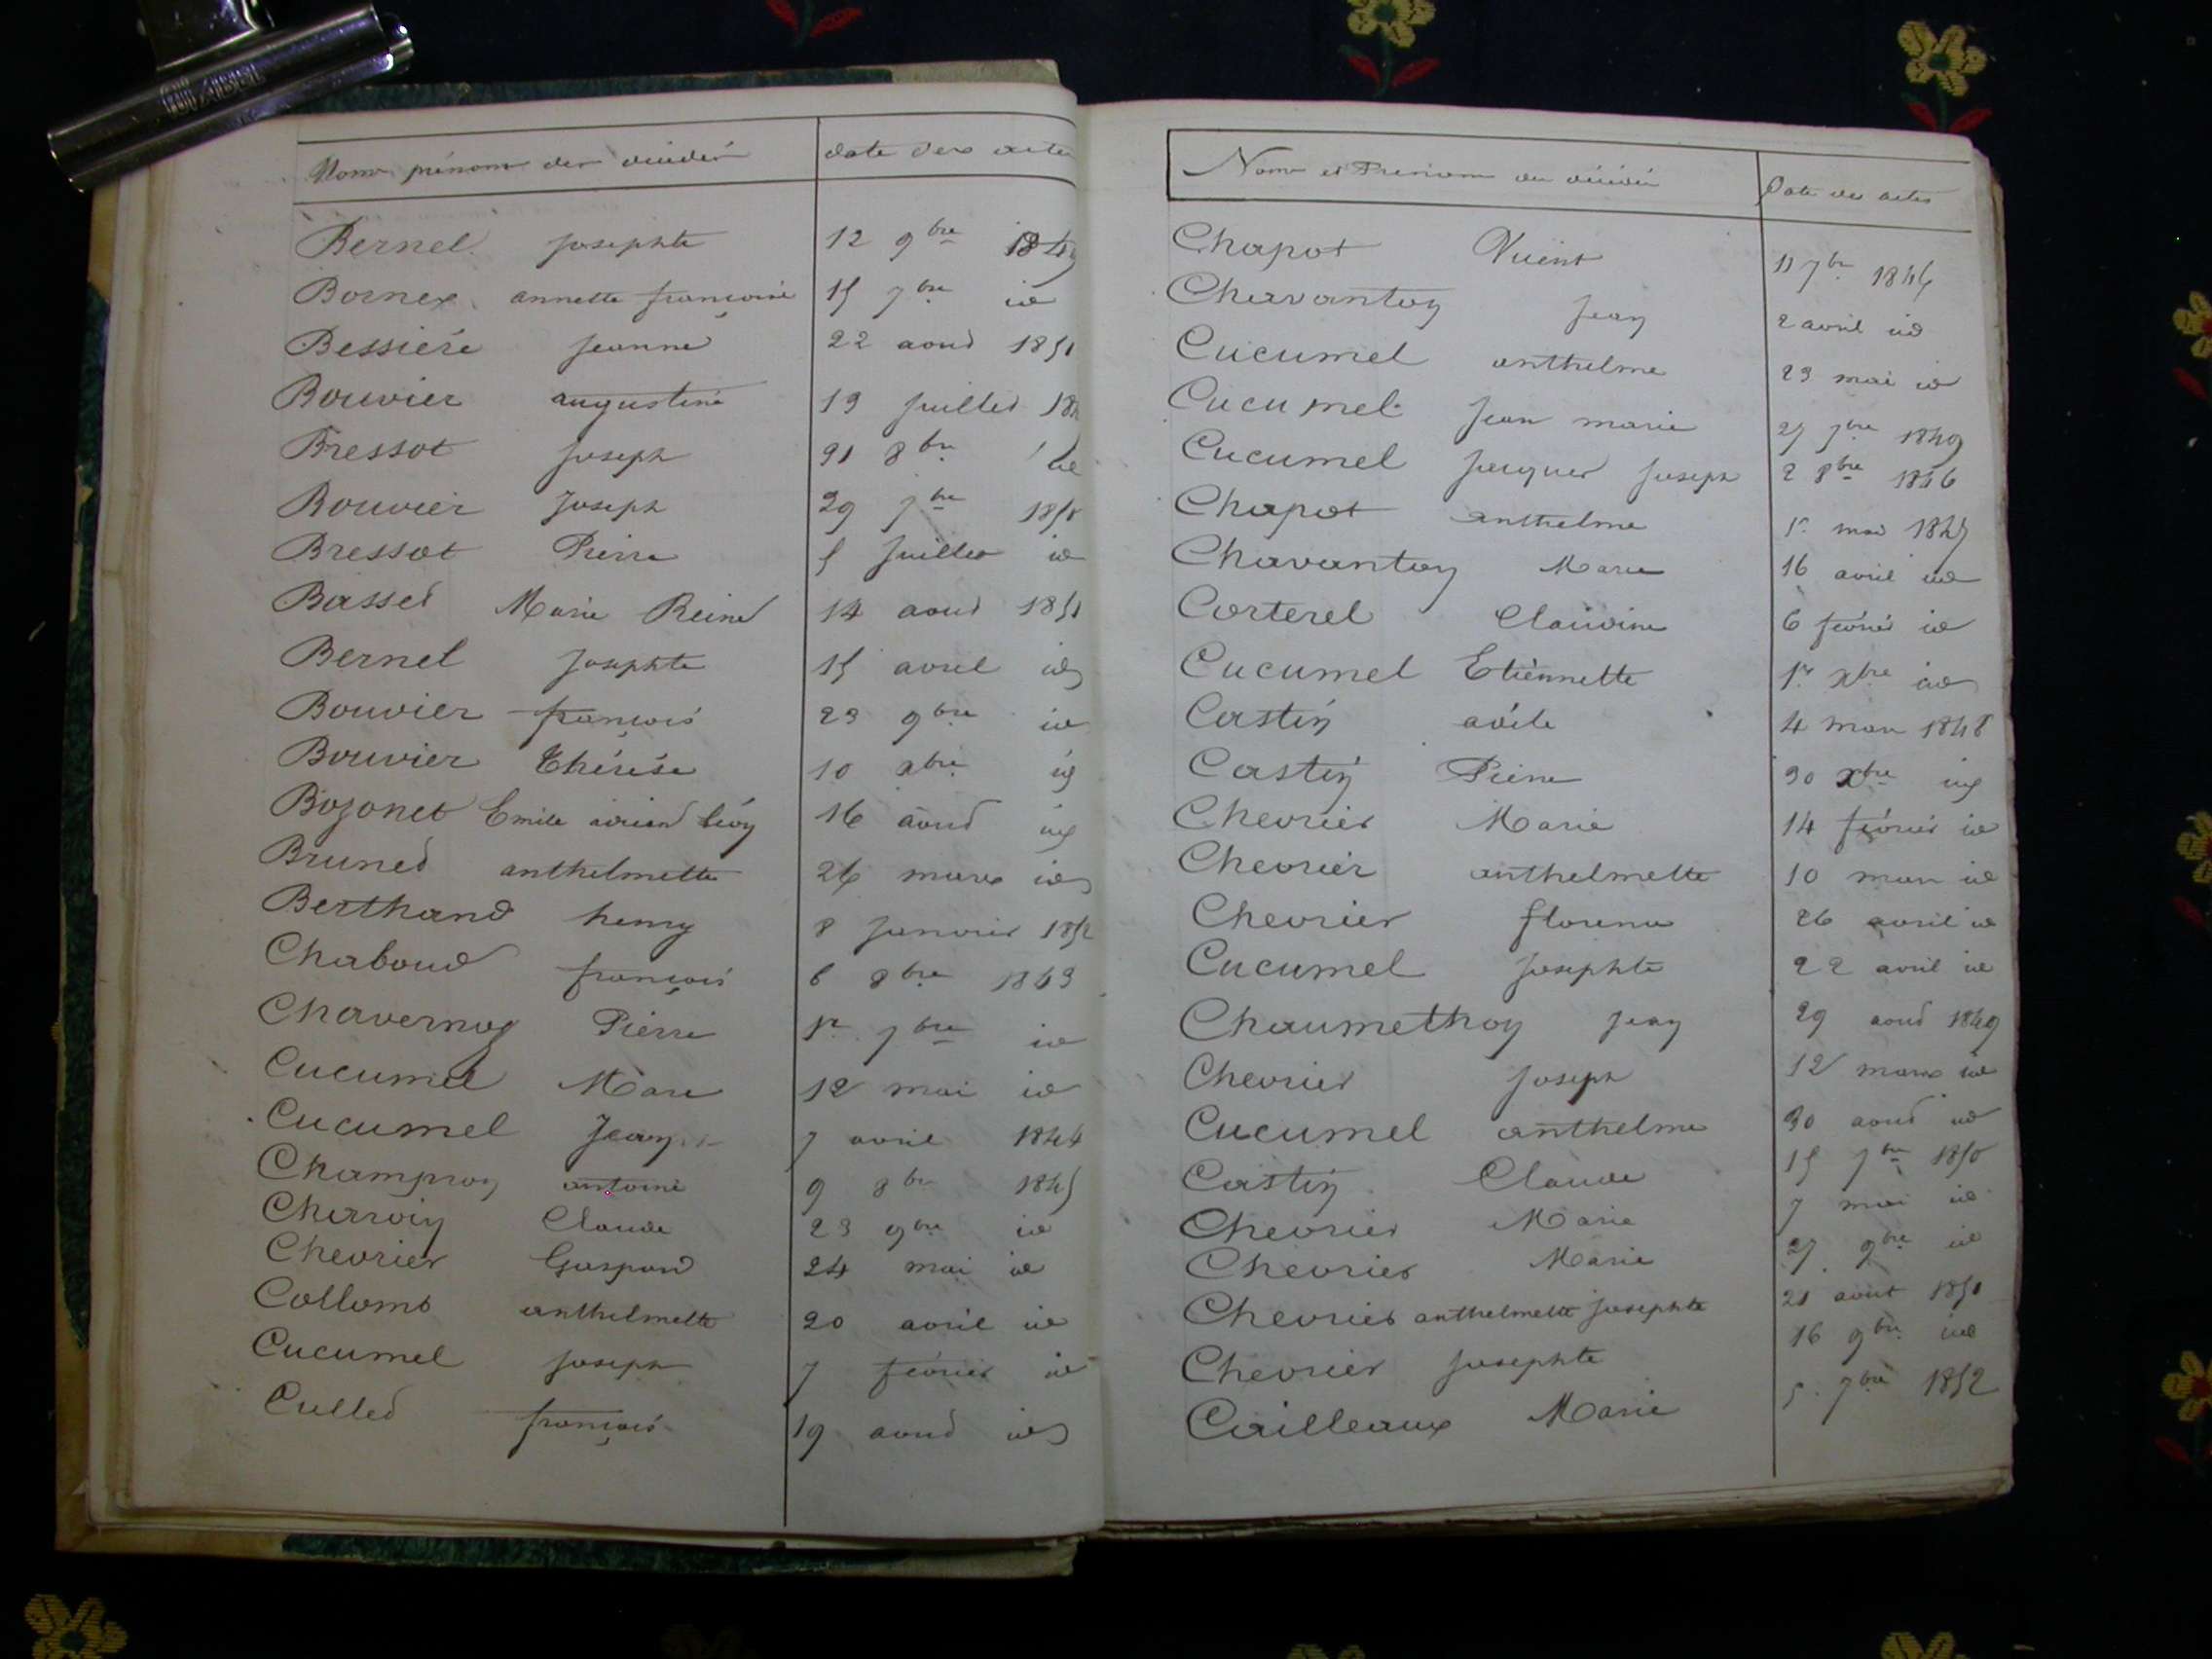 Noms prénoms des décédés date des actes
Bernel josephte 12 9bre
Bornex annette françoise 15 7bre id
Bessiére jeanne 22 aoud 1851
Bouvier augustine 19 juilled
Bressot joseph 31 8bre id
Bouvier Joseph 29 7bre 1850
Bressot Pierre 5 juilled id
Bassed Marie Reine 14 aoud 1851
Bernel josephte 15 avril id
Bouvier françois 23 9bre id
Bouvier Thérése 10 xbre id
Bozonet Emile Léon 16 aoud id
Bruned anthelmette 26 mars id
Berthand henry 8 janvier 1852
Chaboud françois 6 8bre 1843
Chavernoy Pierre 1er 7bre id
Cucumel Marie 12 mai id
Cucumel Jean 7 avril 1844
Champroy antoine 9 8bre 1845
Charvin Claude 23 9bre id
Chevrier Gaspard 24 mai id
Collomb anthelmette 20 avril id
Cucumel joseph 7 février id
Culled françois 19 aoud id
Noms et Prenoms des décédés Date des actes
Chapot 11 7bre 1846
Chavanton jean 2 avril id
Cucumel anthelme 23 mai id
Cucumel jean marie 27 7bre
Cucumel jacques joseph 2 8bre 1846
Chapot anthelme 1er mai 1847
Chavanton Marie 16 avril id
Corterel Claudine 6 février id
Cucumel Etiennette 1er xbre id
Castin adéle 4 mars 1848
Castin Pierre 30 Xbre id
Chevrier Marie 14 février id
Chevrier anthelmette 10 mars id
Chevrier florence 26 avril id
Cucumel josephte 22 avril id
Chaumethon jean 29 aoud 1849
Chevrier joseph 12 mars id
Cucumel anthelme 30 aoud id
Castin Claude 15 7bre 1850
Chevrier Marie 7 mai id
Chevrier Marie 27 9bre id
Chevrier anthelmette josephte 21 aout 1851
Chevrier josephte 16 9bre id
Cailleaux Marie 5 7bre 1852